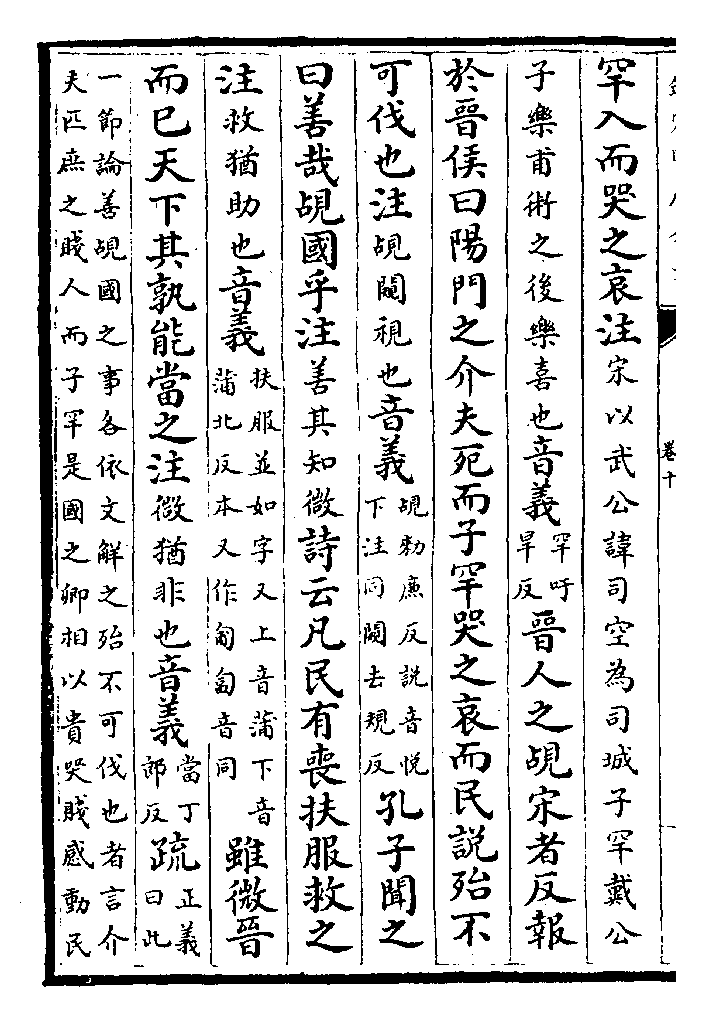 卷十
罕入而哭之哀注宋以武公諱司空為司城子罕戴公
子樂甫術之後樂喜也音義罕吁旱反晉人之覘宋者反報
於晉侯曰陽門之介夫死而子罕哭之哀而民說殆不
可伐也注覘闚視也音義覘勑廉反說音悅下注同闚去規反孔子聞之
曰善哉覘國乎注善其知微詩云凡民有喪扶服救之
注救猶助也音義扶服並如字又上音蒲下音蒲北反本又作匍匐音同雖微晉
而已天下其孰能當之注微猶非也音義當丁郎反疏正義曰此
一節論善覘國之事各依文解之殆不可伐也者言介
夫匹庶之賤人而子罕是國之卿相以貴哭賤感動民